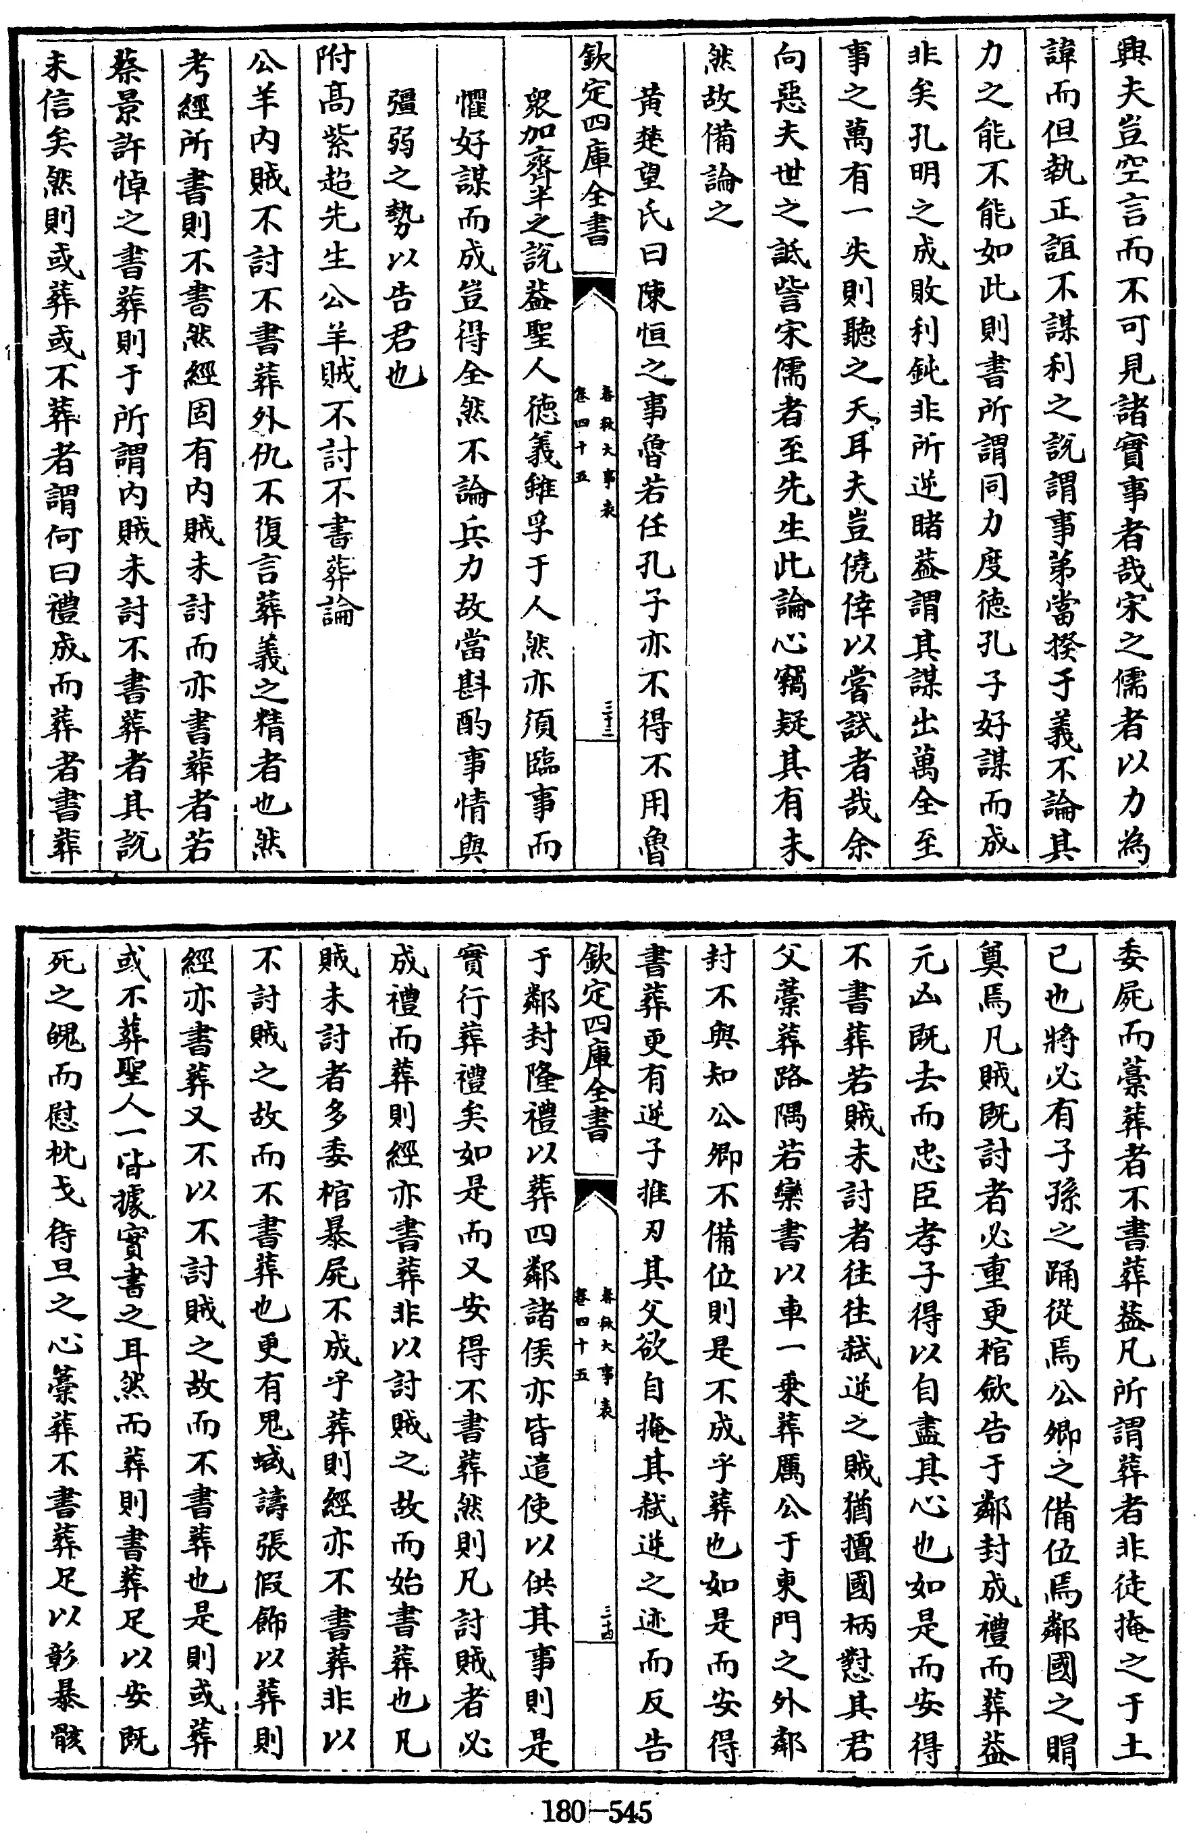 興夫豈空言而不可見諸實事者哉宋之儒者以力為
諱而但執正誼不謀利之說謂事第當揆于義不論其
力之能不能如此則書所謂同力度德孔子好謀而成
非矣孔明之成敗利鈍非所逆睹葢謂其謀出萬全至
事之萬有一失則聽之天耳夫豈僥倖以嘗試者哉余
向惡夫世之詆訾宋儒者至先生此論心竊疑其有未
然故備論之
黃楚望氏曰陳恒之事魯若任孔子亦不得不用魯
欽定四庫全書
春秋大事表
卷四十五
三十三
衆加齊半之說葢聖人德義雖孚于人然亦須臨事而
懼好謀而成豈得全然不論兵力故當斟酌事情與
彊弱之勢以告君也
附高紫超先生公羊賊不討不書葬論
公羊內賊不討不書葬外仇不復言葬義之精者也然
考經所書則不書然經固有內賊未討而亦書葬者若
蔡景許悼之書葬則于所謂內賊未討不書葬者其說
未信矣然則或葬或不葬者謂何曰禮成而葬者書葬
委屍而藁葬者不書葬葢凡所謂葬者非徒掩之于土
已也將必有子孫之踊從焉公卿之備位焉鄰國之賵
奠焉凡賊既討者必重更棺斂告于鄰封成禮而葬葢
元凶既去而忠臣孝子得以自盡其心也如是而安得
不書葬若賊未討者往往弑逆之賊猶擅國柄懟其君
父藁葬路隅若欒書以車一乗葬厲公于東門之外鄰
封不與知公卿不備位則是不成乎葬也如是而安得
書葬更有逆子推刃其父欲自掩其弑逆之迹而反告
欽定四庫全書
春秋大事表
卷四十五
三十四
于鄰封隆禮以葬四鄰諸侯亦皆遣使以供其事則是
實行葬禮矣如是而又安得不書葬然則凡討賊者必
成禮而葬則經亦書葬非以討賊之故而始書葬也凡
賊未討者多委棺暴屍不成乎葬則經亦不書葬非以
不討賊之故而不書葬也更有鬼蜮譸張假飾以葬則
經亦書葬又不以不討賊之故而不書葬也是則或葬
或不葬聖人一皆據實書之耳然而葬則書葬足以安既
死之魄而慰枕戈待旦之心藁葬不書葬足以彰暴骸
180-545